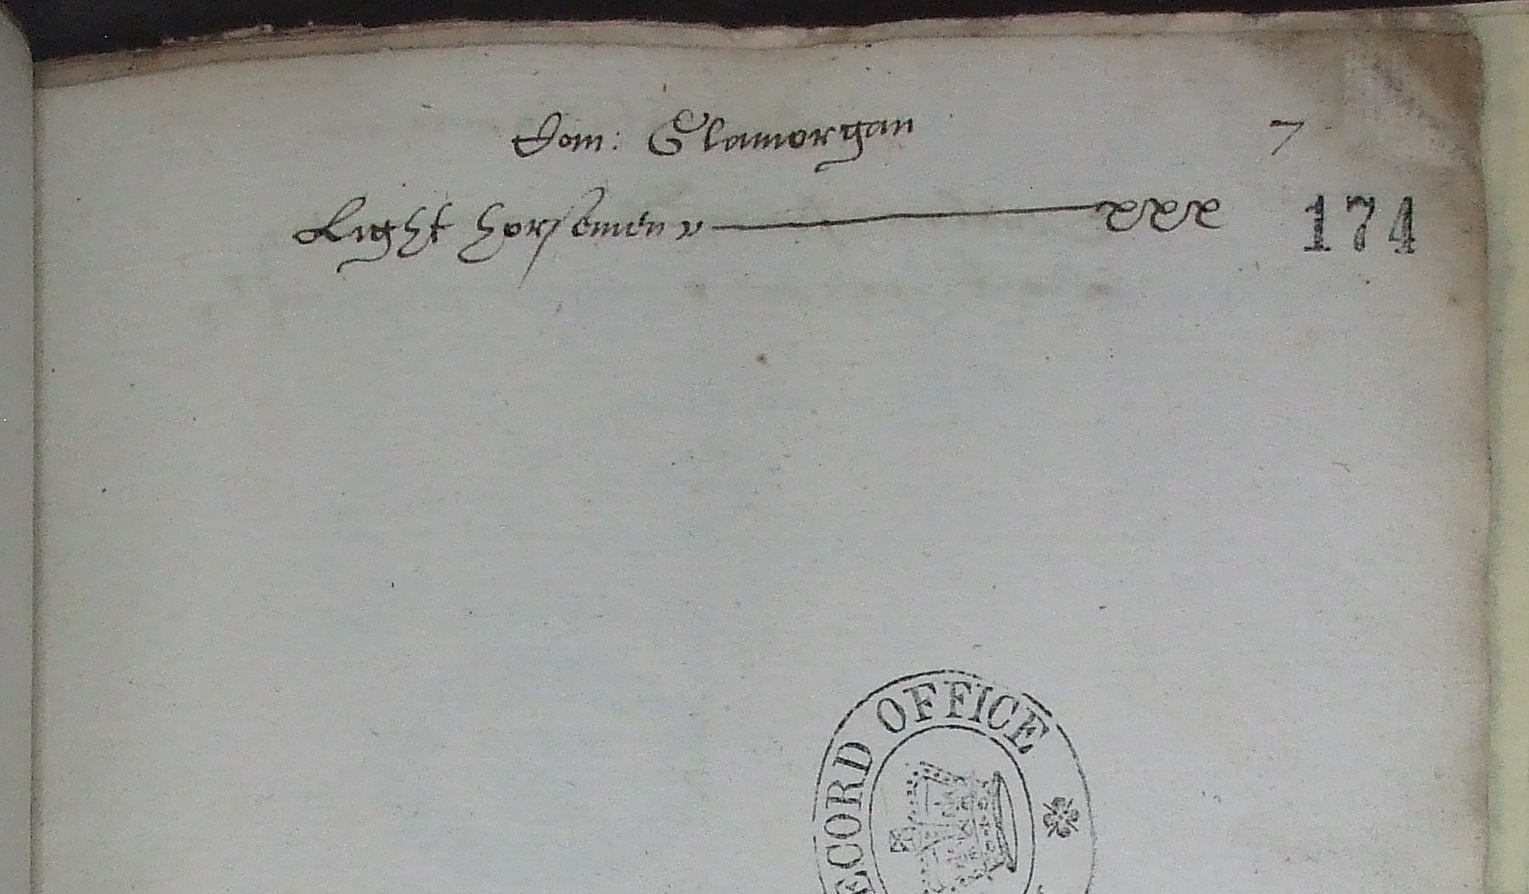 Com: Glamorgan 7
Light horsemen xxx 174
RECORD OFFICE